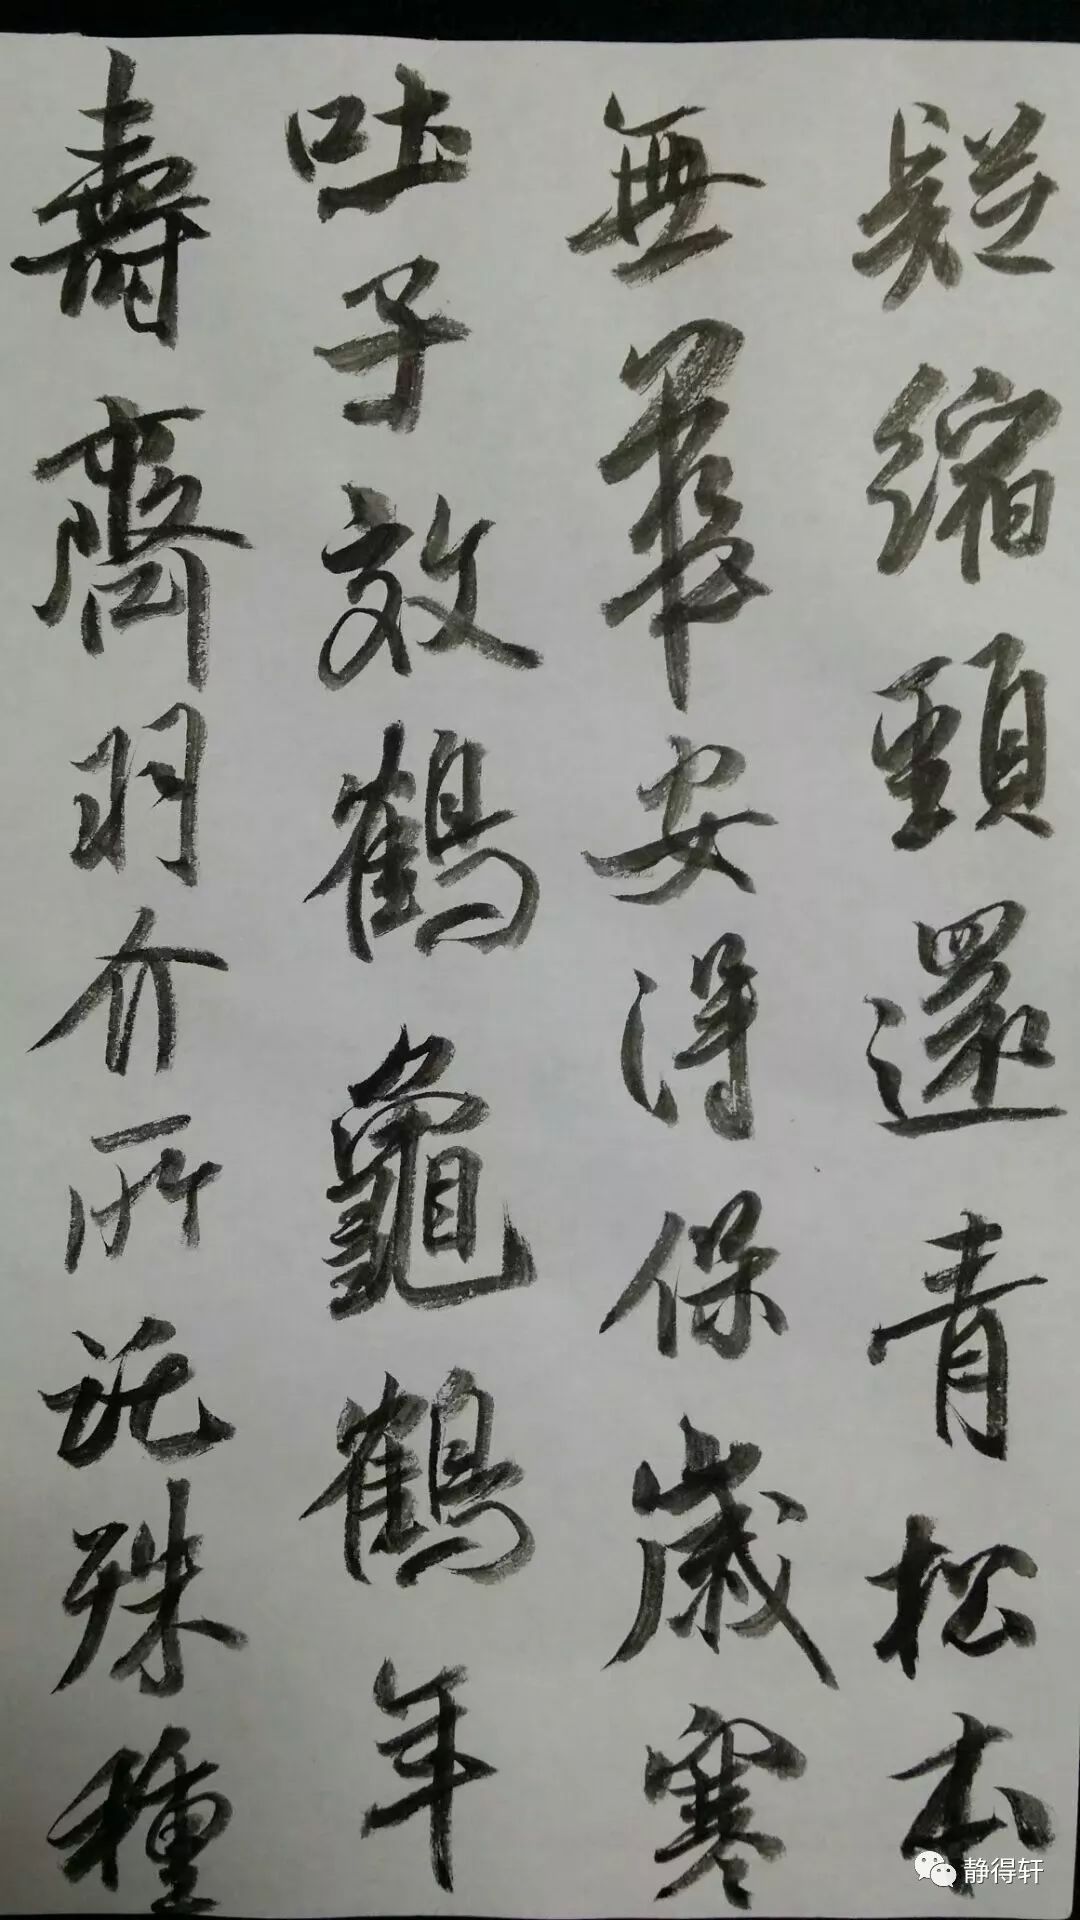 疑縮頸還青松本
無華安得保歲寒
吐子效鶴龜鶴年
壽齊羽介所託殊種
静得轩